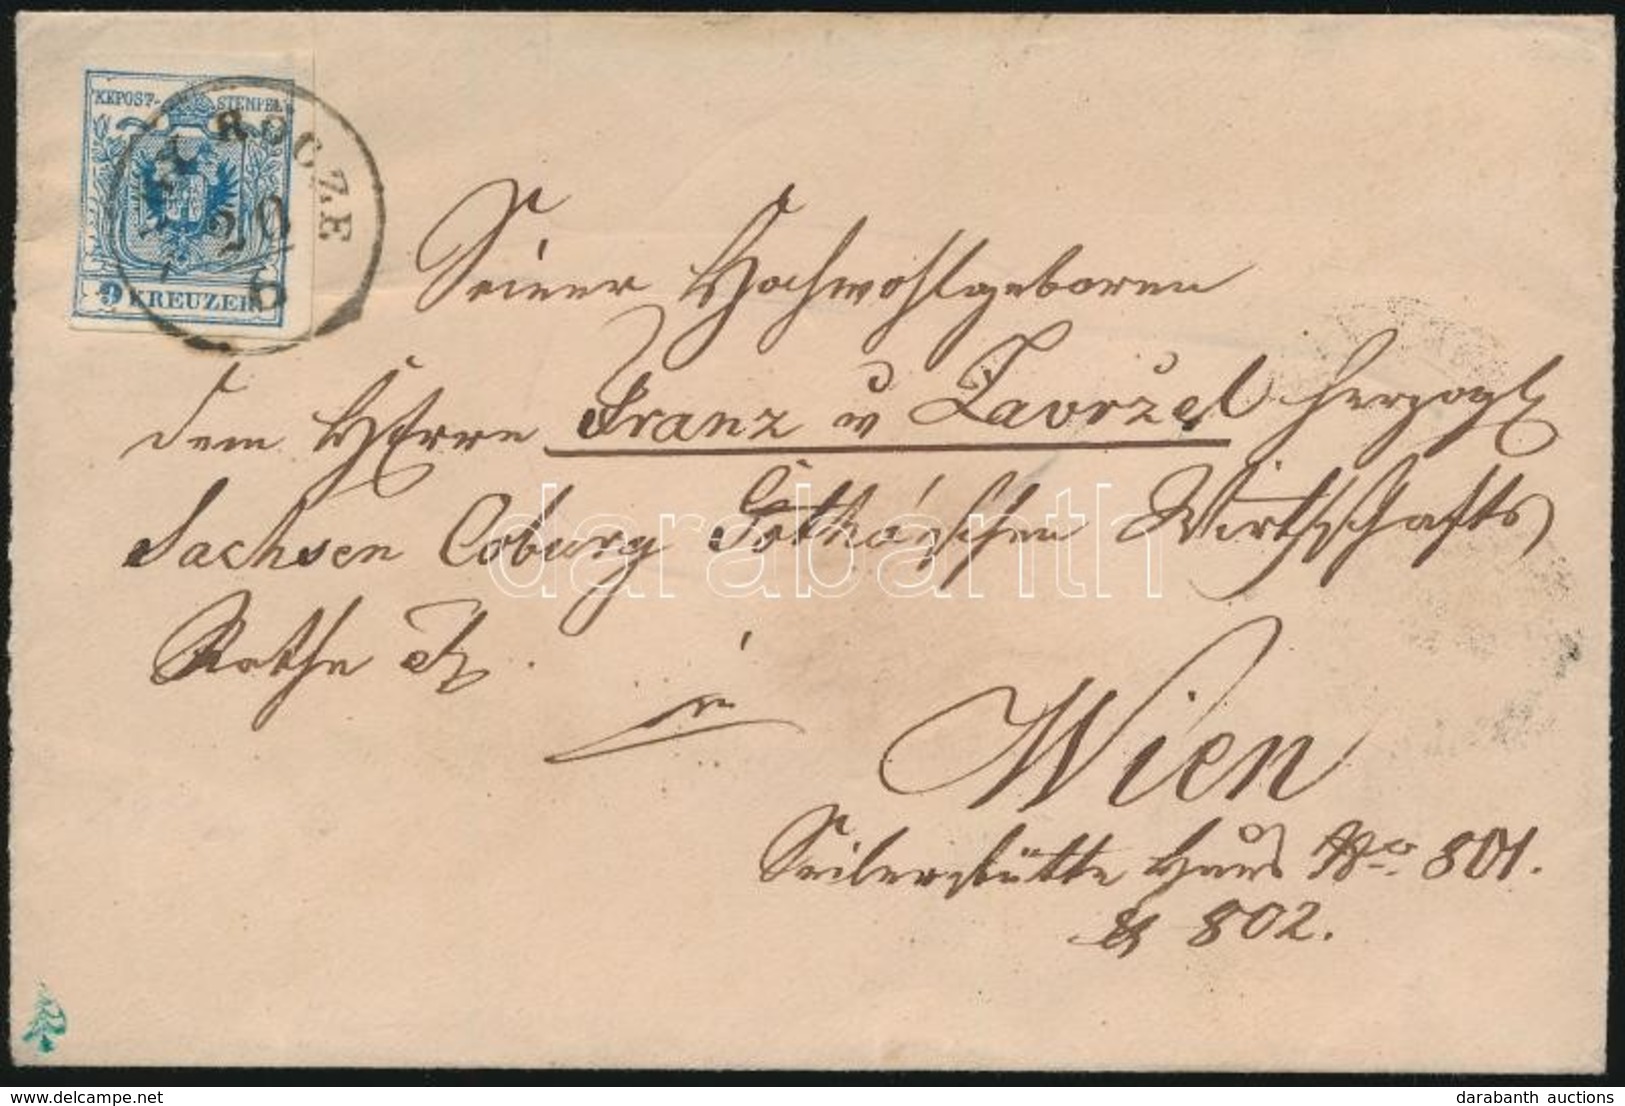 KKPOST-STEMPEL
ROCZE
20
6
9 KREUZER
Seiner Hochwohlgeboren
dem Herrn Franz v Zavrzel herzogl
Sachsen Coburg Gotháischen Wirthschafts
Rathe
in
Wien
Seilerstätte Haus No. 801.
& 802.
darabanth
delcampe.net
darabanth auctions